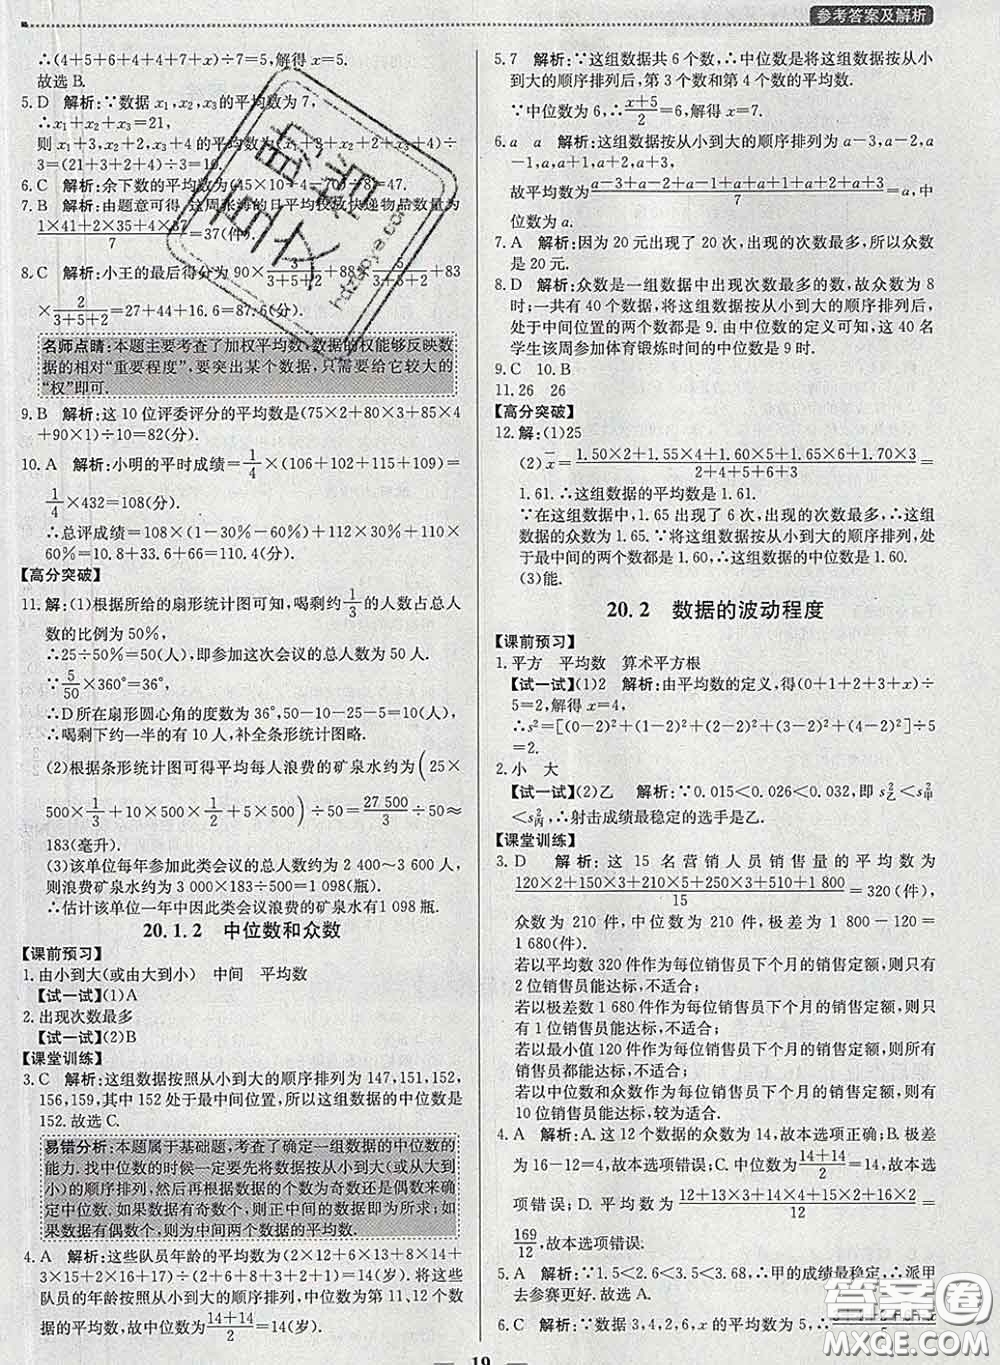 参考答案及解析
∴(4+5+6+4+4+7+x)÷7=5,解得 x=5.
故选 B.
5. D 解析:∵数据 x₁,x₂,x₃的平均数为 7,
∴x₁+x₂+x₃=21,
则 x₁+3,x₂+2,x₃+4 的平均数为(x₁+3+x₂+2+x₃+4)÷
3=(21+3+2+4)÷3=10.
6. C 解析:余下数的平均数为(45×10-70)÷8=47.
7. B 解析:由题意可得,这周张海的日平均投放快递物品数量为
\frac{1×41+2×35+4×37}{7}=37(件).
8. C 解析:小王的最后得分为 90×\frac{3}{3+5+2}+88×\frac{5}{3+5+2}+83
×\frac{2}{3+5+2}=27+44+16.6=87.6(分).
名师点睛:本题主要考查了加权平均数,数据的权能够反映数
据的相对“重要程度”,要突出某个数据,只需要给它较大的
“权”即可.
9. B 解析:这 10 位评委评分的平均数是(75×2+80×3+85×4
+90×1)÷10=82(分).
10. A 解析:小明的平时成绩=\frac{1}{4}×(106+102+115+109)=
\frac{1}{4}×432=108(分).
∴总评成绩=108×(1-30%-60%)+112×30%+110×
60%=10.8+33.6+66=110.4(分).
【高分突破】
11. 解:(1)根据所给的扇形统计图可知,喝剩约\frac{1}{3}的人数占总人
数的比例为 50%,
∴25÷50%=50(人),即参加这次会议的总人数为 50 人.
∵\frac{5}{50}×360°=36°,
∴D 所在扇形圆心角的度数为 36°,50-10-25-5=10(人),
∴喝剩下约一半的有 10 人,补全条形统计图略.
(2)根据条形统计图可得平均每人浪费的矿泉水约为(25×
500×\frac{1}{3}+10×500×\frac{1}{2}+5×500)÷50=\frac{27 500}{3}÷50≈
183(毫升).
(3)该单位每年参加此类会议的总人数约为 2 400~3 600 人,
则浪费矿泉水约为 3 000×183÷500=1 098(瓶).
∴估计该单位一年中因此类会议浪费的矿泉水有 1 098 瓶.
20.1.2 中位数和众数
【课前预习】
1. 由小到大(或由大到小) 中间 平均数
【试一试】(1)A
2. 出现次数最多
【试一试】(2)B
【课堂训练】
3. C 解析:这组数据按照从小到大的顺序排列为 147,151,152,
156,159,其中 152 处于最中间位置,所以这组数据的中位数是
152.故选 C.
易错分析:本题属于基础题,考查了确定一组数据的中位数的
能力.找中位数的时候一定要先将数据按从小到大(或从大到
小)的顺序排列,然后再根据数据的个数为奇数还是偶数来确
定中位数.如果数据有奇数个,则正中间的数据即为所求;如
果数据有偶数个,则为中间两个数据的平均数.
4. A 解析:这些队员年龄的平均数为(2×12+6×13+8×14+
3×15+2×16+1×17)÷(2+6+8+3+2+1)=14(岁).将这
些队员的年龄按从小到大的顺序排列,中位数为第 11,12 个数
据的平均数,故中位数为\frac{14+14}{2}=14(岁).
5. 7 解析:∵这组数据共 6 个数,∴中位数是这组数据按从小
到大的顺序排列后,第 3 个数和第 4 个数的平均数.
∵中位数为 6,∴\frac{x+5}{2}=6,解得 x=7.
6. a a 解析:这组数据按从小到大的顺序排列为 a-3,a-2,a
-1,a,a+1,a+2,a+3,
故平均数为\frac{a-3+a-2+a-1+a+a+1+a+2+a+3}{7}=a,中
位数为 a.
7. A 解析:因为 20 元出现了 20 次,出现的次数最多,所以众数
是 20 元.
8. D 解析:众数是一组数据中出现次数最多的数,故众数为 8
时;一共有 40 个数据,将这组数据按从小到大的顺序排列后,
处于中间位置的两个数都是 9.由中位数的定义可知,这 40 名
学生该周参加体育锻炼时间的中位数是 9 时.
9. C 10. B
11. 26 26
【高分突破】
12. 解:(1)25
(2)x̄=\frac{1.50×2+1.55×4+1.60×5+1.65×6+1.70×3}{2+4+5+6+3}=
1.61.∴这组数据的平均数是 1.61.
∵在这组数据中,1.65 出现了 6 次,出现的次数最多,∴这组
数据的众数为 1.65.∵将这组数据按从小到大的顺序排列,
处于最中间的两个数都是 1.60,∴这组数据的中位数是 1.60.
(3)能.
20.2 数据的波动程度
【课前预习】
1. 平方 平均数 算术平方根
【试一试】(1)2 解析:由平均数的定义,得(0+1+2+3+x)÷
5=2,解得 x=4,
∴s²=[(0-2)²+(1-2)²+(2-2)²+(3-2)²+(4-2)²]÷5
=2.
2. 小 大
【试一试】(2)乙 解析:∵0.015<0.026<0.032,即 s²乙<s²甲
<s²丙,∴射击成绩最稳定的选手是乙.
【课堂训练】
3. D 解析:这 15 名营销人员销售量的平均数为
\frac{120×2+150×3+210×5+250×3+510+1 800}{15}=320(件),
众数为 210 件,中位数为 210 件,极差为 1 800-120=
1 680(件).
若以平均数 320 件作为每位销售员下个月的销售定额,则只有
2 位销售员能达标,不适合;
若以极差数 1 680 件作为每位销售员下个月的销售定额,则只
有 1 位销售员能达标,不适合;
若以最小值 120 件作为每位销售员下个月的销售定额,不适合;
若以中位数和众数作为每位销售员下个月的销售定额,则有
10 位销售员能达标,适合.
4. A 解析:A.这 12 个数据的众数为 14,故本选项正确;B.极差
为 16-12=4,故本选项错误;C.中位数为\frac{14+14}{2}=14,故本选
项错误;D.平均数为\frac{12+13×3+14×4+15×2+16×2}{12}=
\frac{169}{12},故本选项错误.
5. A 解析:∵1.5<2.6<3.5<3.68,∴甲的成绩最稳定,∴派甲
去参赛更好.故选 A.
6. C 解析:∵数据 3,4,2,6,x 的平均数为 5,
19
答案圈
MXQE.COM